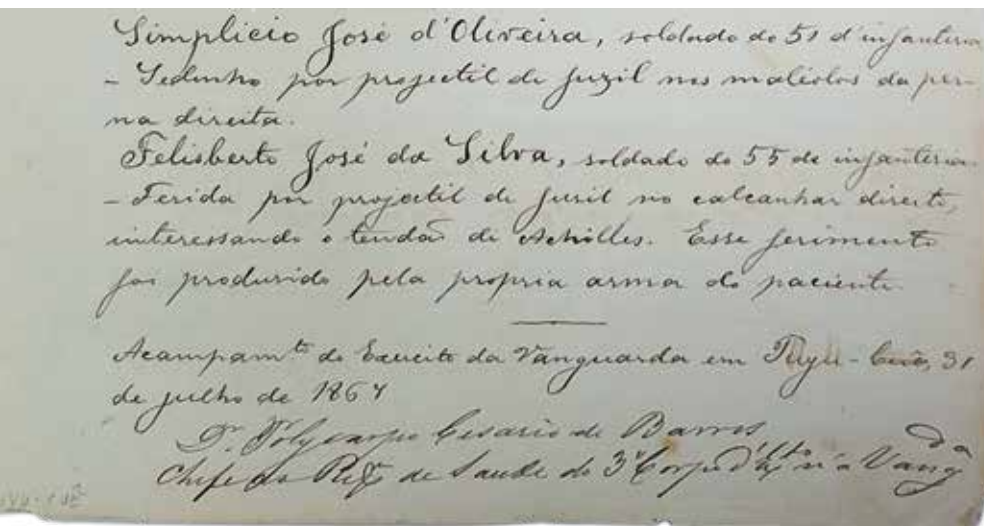 Simplicio José d'Oliveira, soldado do 51 d'infanteria
- Sedenho por projectil de fuzil nos maleolos da per-
na direita.
Felisberto José da Silva, soldado do 55 de infanteria
- Ferida por projectil de fusil no calcanhar direito,
interessando o tendaõ de Achilles. Esse ferimento
foi produzido pela propria arma do paciente.
Acampam.to do Exercito da Vanguarda em Tuyu-Cuê, 31
de julho de 1867
Dr. Polycarpo Cesario de Barros
Chefe da de Saude do 3º Corpo d'